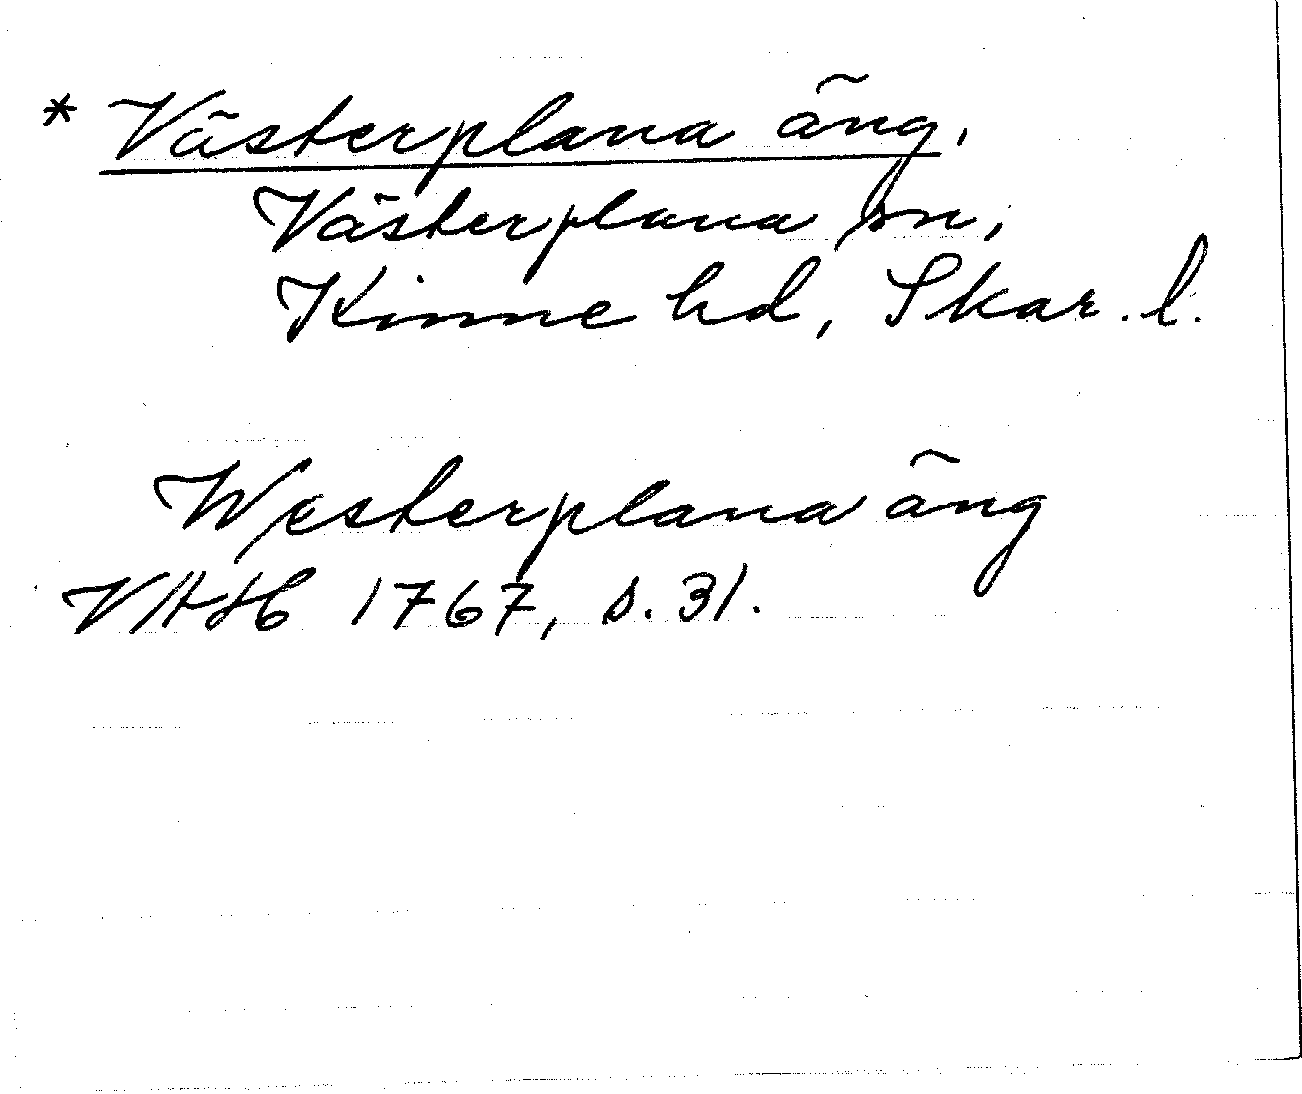 * Västerplana äng,
Västerplana sn,
Kinne hd, Skar. l.
Westerplana äng
VAH 1767, s. 31.